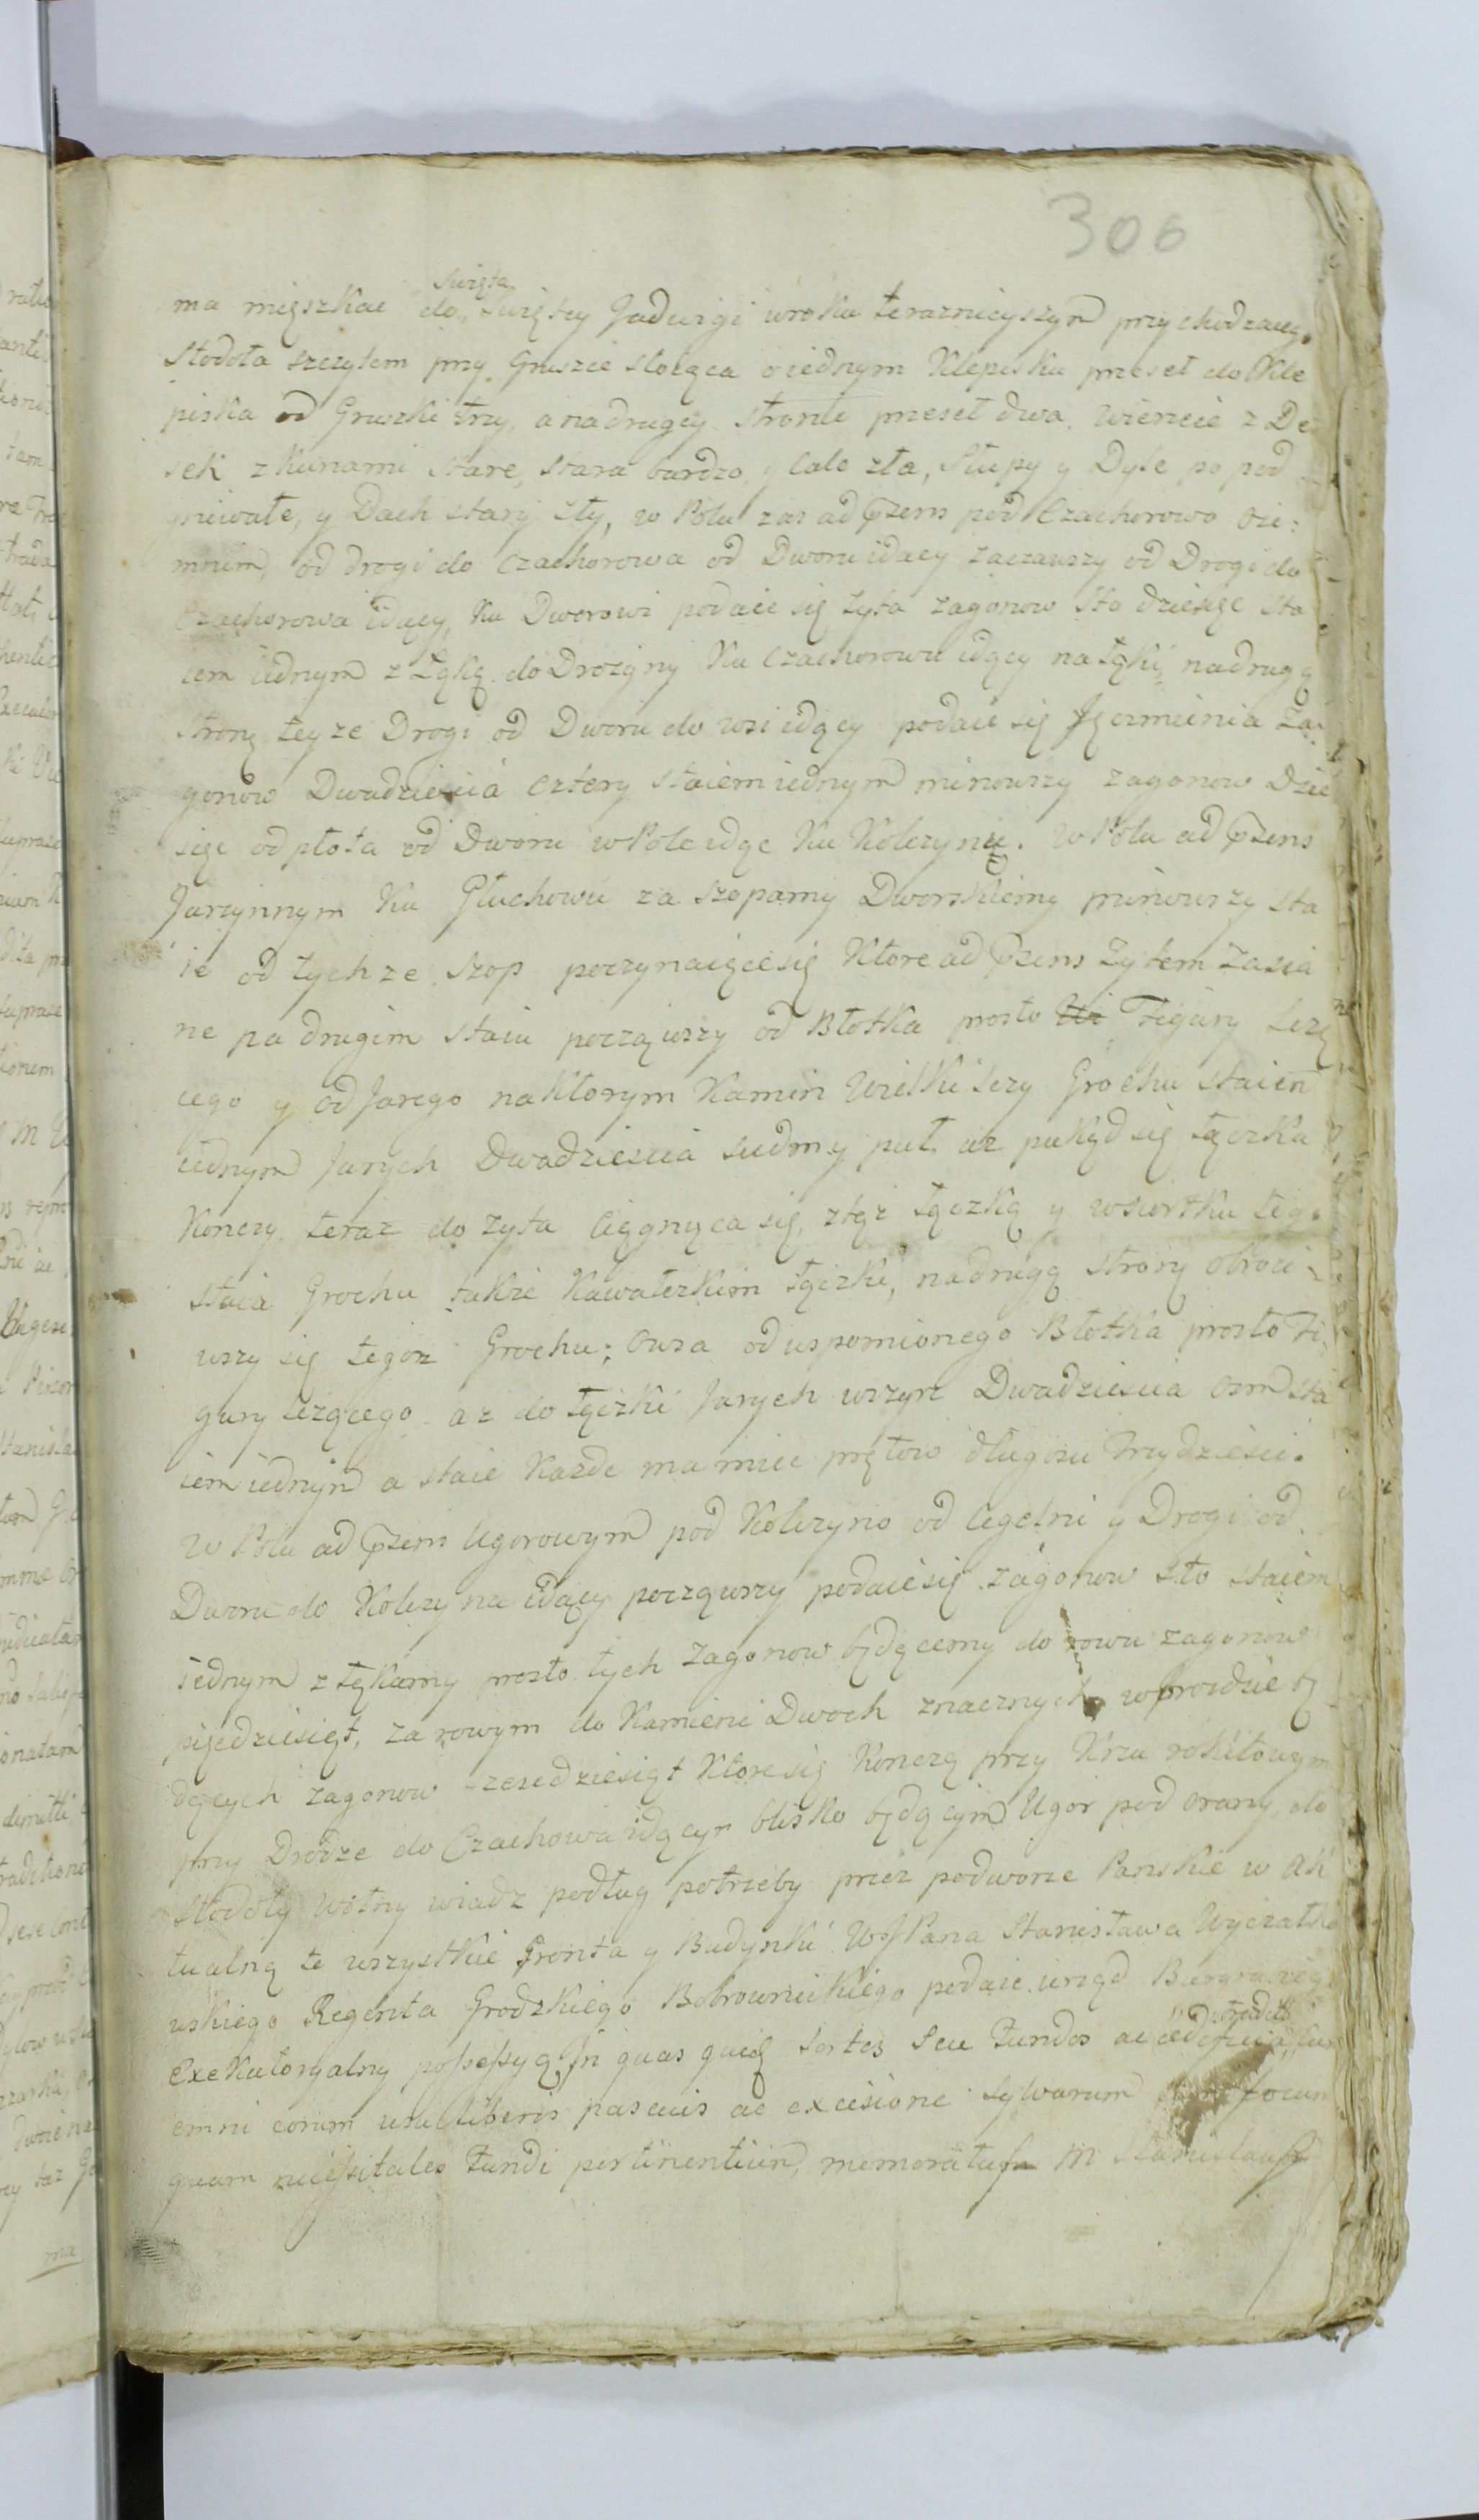 306
Swięta
ma mięszkac do Swiętey Jadwigi wroku teraznieyszym przychodzącego
Stodoła szczytem przy Gruszce stoiąca o iednym Klepisku przeseł do Kle
piska od Gruszki trzy, a nadrugey stronie przeseł dwa, wierzeie z De
sek z kunami stare, stara bardzo y cale zła, Słupy y Dyle po pod
gniwałe, y Dach stary zły, w Polu zas ad pzens pod Czachorowo Ozi:
mnim, od drogi do Czachorowa od Dworu idacy zaczawszy od Drogi do
Czachorowa idący, Ku Dworowi podaie się żyta zagonow sto dziesięc sta
iem iednym z Łąką do Drożyny Ku Czachorowu idący na łąki nadrugą
stronę teyze Drogi od Dworu do wsi idący podaie się Jęczmienia Za
gonow Dwadziescia Cztery staiem iednym minowszy zagonow Dzie
sięc od płota od Dworu w Pole idąc Ku Kolczynu. W Polu ad pzens
Jarzynnym Ku Głuchowu za szopamy Dworskiemy minowszy sta
ie od tychze szop poczynaiącesię Ktore ad pzens żytem zasia
ne na drugim staiu począwszy od Błotka prosto Figury leżą
cego y od Jarego naktorym Kamin Wielki leży Grochu staien
iednym Jarych Dwadziescia siedmy puł az pukąd się łączka
Konczy teraz do żyta ciągnąca się, z tąż łączką y wsierotku tego
staia Grochu także Kawałczkim łączki, nadrugą stronę obroci
wszy się tegoz Grochu; Owsa oduspomionego Błotka prosto Fi
gury leżącego az do łączki Jarych wszyrz Dwadziescia Osm sta
iem iednym a staie Każde ma miec prętow długosci trzydziesci.
W Polu ad pzens Ugorowym pod Kolczyno od Cegelni y Drogi od
Dworu do Kolczyna idący począwszy podaiesię zagonow sto staiem
iednym z łąkamy prosto tych zagonow będącemy do rowu zagonow
pięcdziesiąt, za rowym do Kamieni Dwoch znacznych wprowdzie bę
dących zagonow szescdziesiąt Ktore się Konczą przy Krzu rokitowym
przy Drodze do Czachowa idącyr blisko będącym Ugor pod orany, do
Stodoły Wolny wiadz podług potrzeby przez podworze Panskie w Ak
tualną te wszystkie Gronta y Budynki WJPana Stanisława Wyczałko
wskiego Regenta Grodzkiego Bobrownickiego podaie urząd Burgrabiego
Exekutoryalny possessyą. In quas quidem Sortes seu Fundos ac ædeficia cum
omni eorum usu liberis pascuis ac excisione sylwarum
quam necessitates Fundi pertinentium, memoratus M Stanislaus